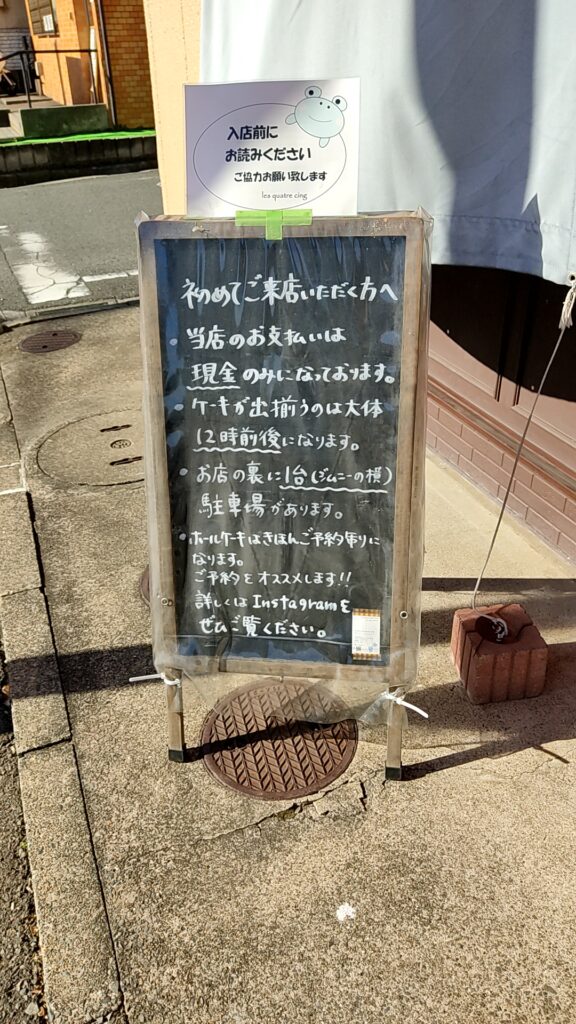 入店前に
お読みください
ご協力お願い致します
les quatre cinq
初めてご来店いただく方へ
・当店のお支払いは
現金のみになっております。
・ケーキが出揃うのは大体
12時前後になります。
・お店の裏に1台(ジムニーの横)
駐車場があります。
・ホールケーキはきほんご予約のみに
なります。
ご予約をオススメします!!
詳しくはInstagramを
ぜひご覧ください。